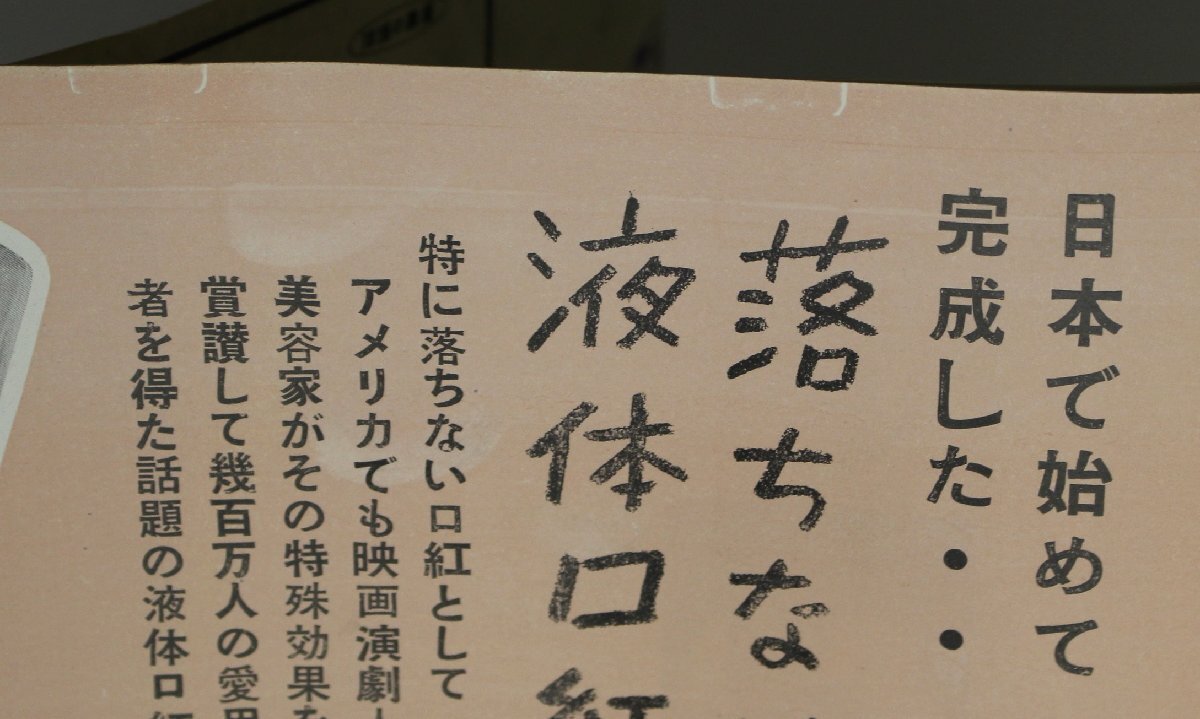 日本で始めて
完成した・・
落ちな
液体口紅
特に落ちない口紅として
アメリカでも映画演劇
美容家がその特殊効果を
賞讃して幾百万人の愛用
者を得た話題の液体口紅